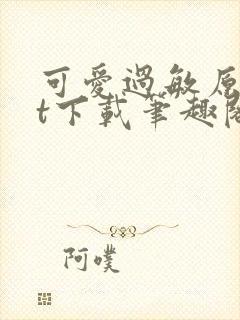 可愛過敏原
t下載筆趣閣
阿噗